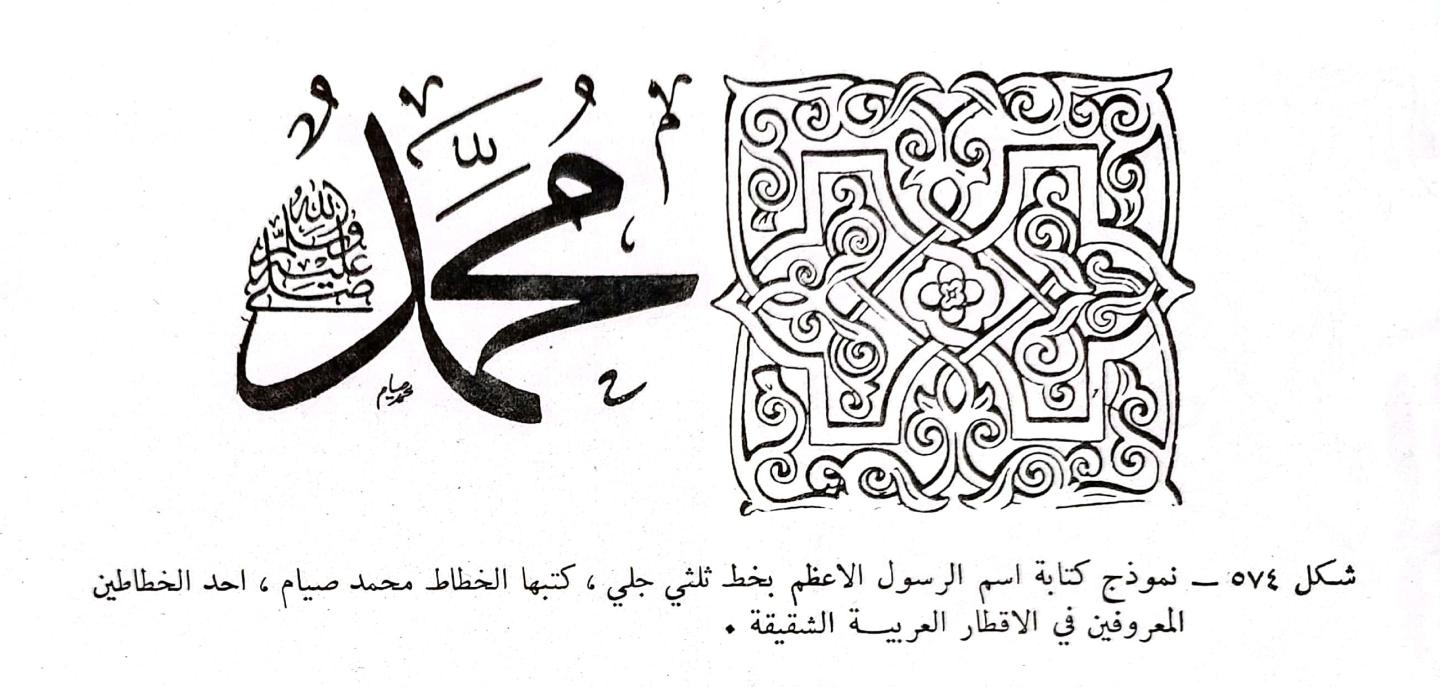 محمد
صلى الله عليه وسلم
محمد صيام
شكل ٥٧٤ ــ نموذج كتابة اسم الرسول الاعظم بخط ثلثي جلي ، كتبها الخطاط محمد صيام ، احد الخطاطين
المعروفين في الاقطار العربيــة الشقيقة .